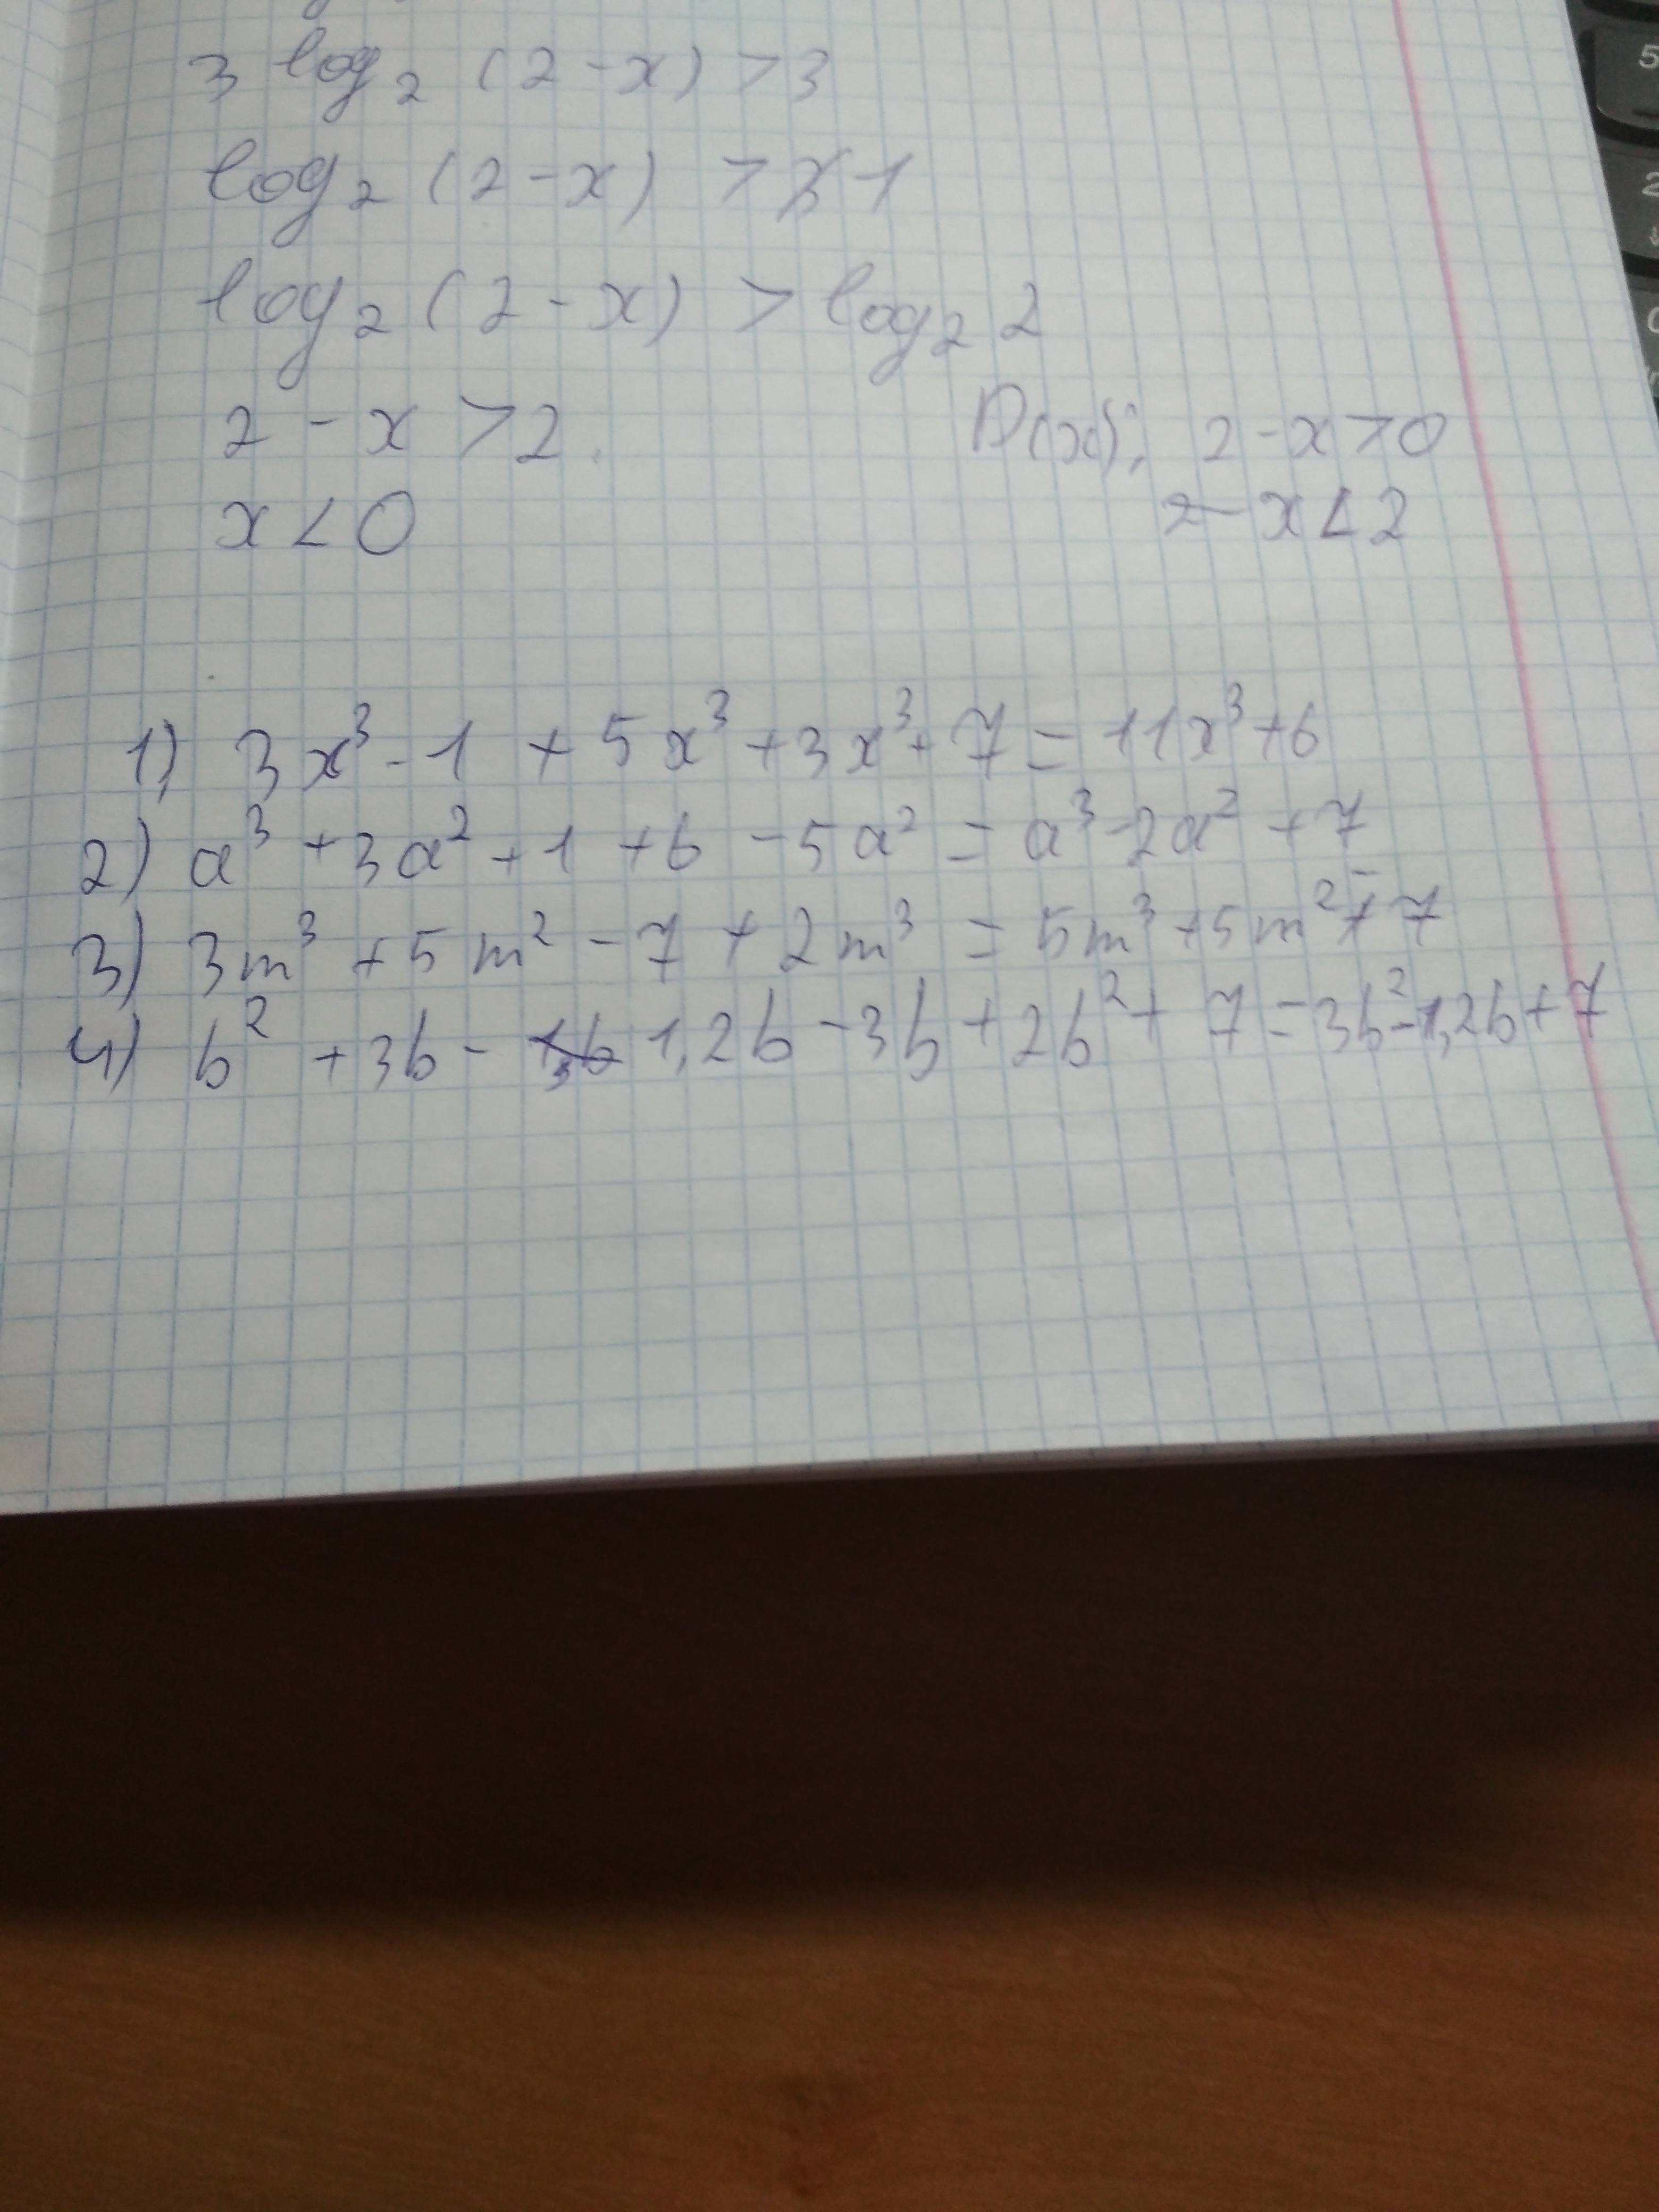 3 log₂ (2 - x) > 3
log₂ (2 - x) > 1
log₂ (2 - x) > log₂ 2
2 - x > 2. D(x): 2 - x > 0
x < 0 x < 2
1) 3x³ - 1 + 5x³ + 3x³ + 7 = 11x³ + 6
2) a³ + 3a² + 1 + 6 - 5a² = a³ - 2a² + 7
3) 3m³ + 5m² - 7 + 2m³ = 5m³ + 5m² - 7
4) b² + 3b - 1,2b - 3b + 2b² + 7 = 3b² - 1,2b + 7
5
2